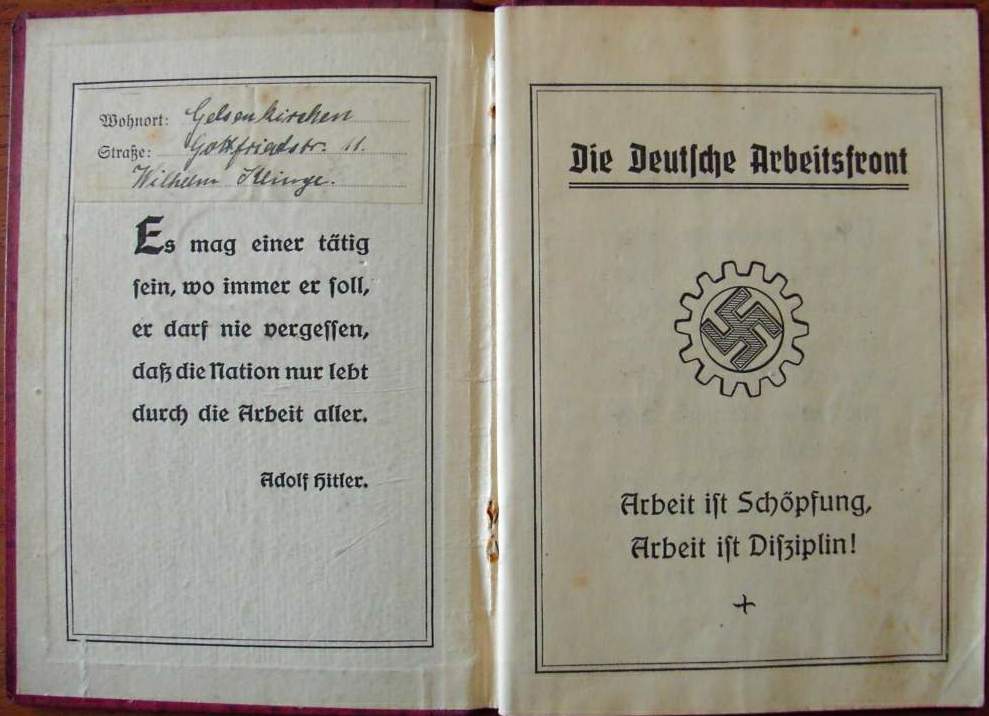 Wohnort: Gelsenkirchen
Straße: Gottfriedstr. 11.
Wilhelm Klinge.
Es mag einer tätig
sein, wo immer er soll,
er darf nie vergessen,
daß die Nation nur lebt
durch die Arbeit aller.
Adolf Hitler.
Die Deutsche Arbeitsfront
Arbeit ist Schöpfung,
Arbeit ist Disziplin!